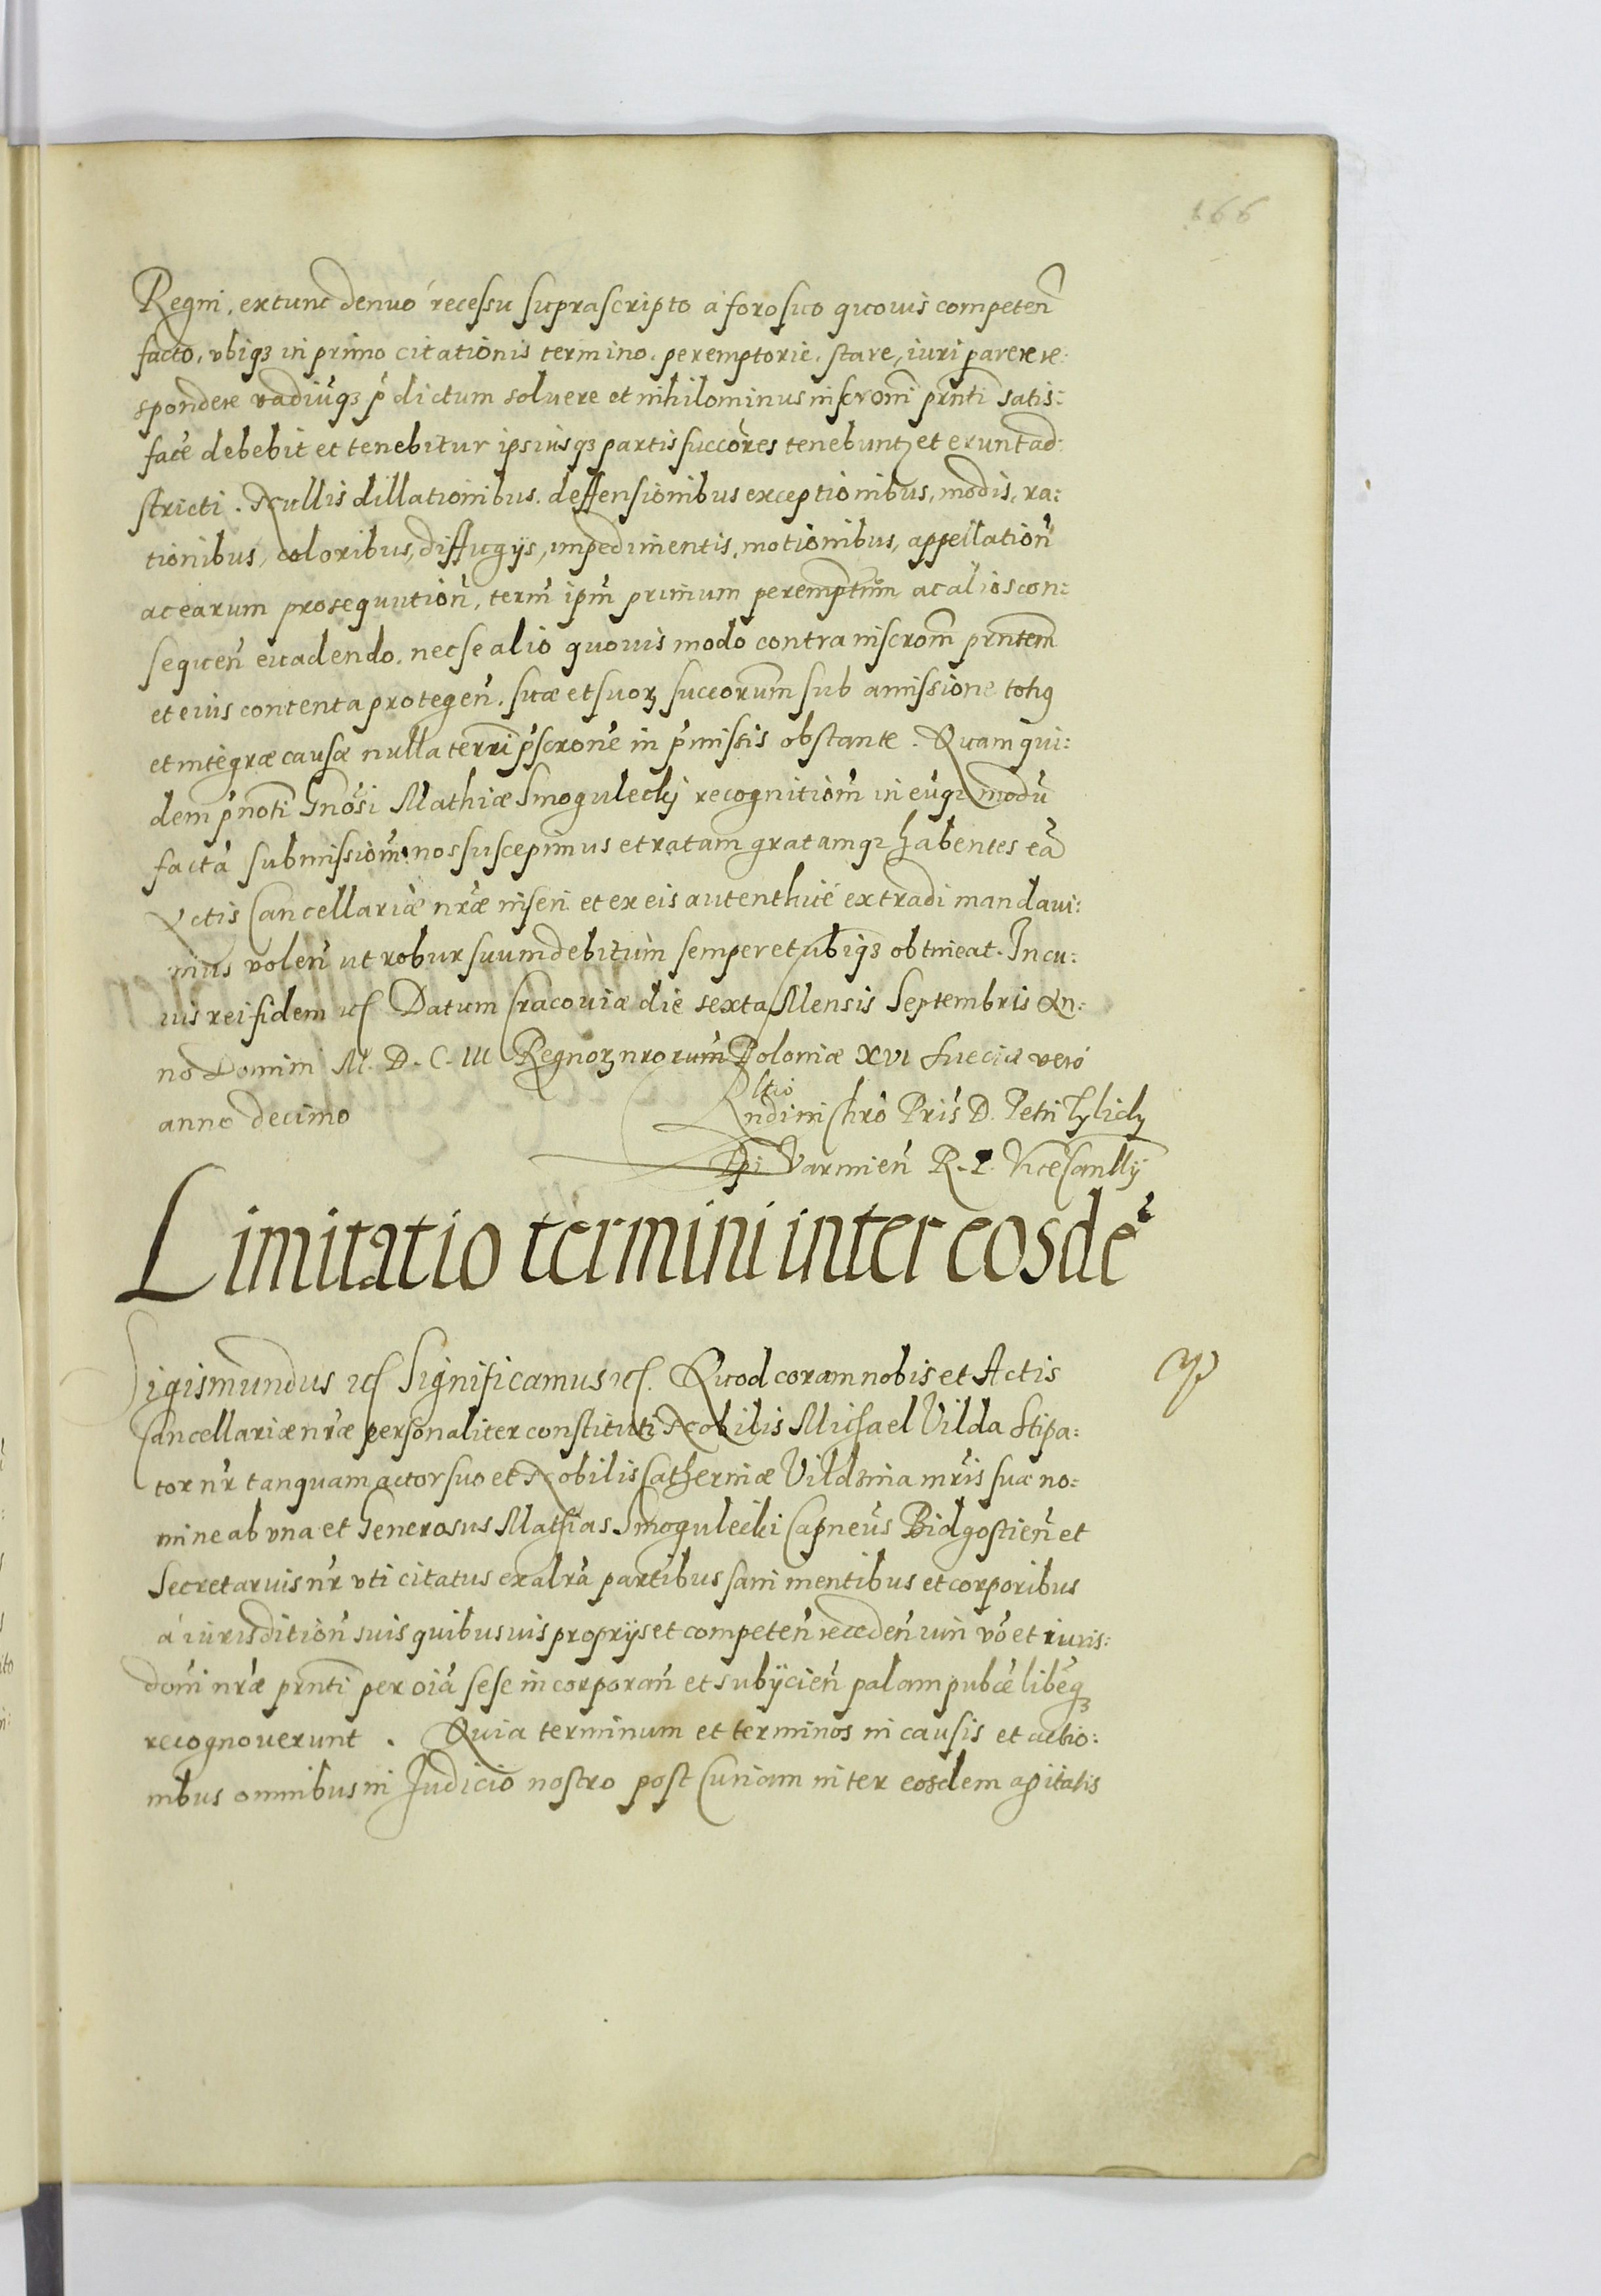 166
Regni, extunc denuo recessu suprascripto a foro suo quovis competeñ
facto, vbiqз in primo citationis termino, peremptorie, stare, iuri parere re:
spondere vadiuqз p̃dictum soluere et nihilominus inscroni prñti satis:
facẽ debebit et tenebitur ipsiusqз partis succores tenebuntz et erunt ad:
stricti. Nullis dillationibus, deffensionibus exceptionibus, modis, ra:
tionibus, coloribus, diffugijs, impedimentis, motionibus, appellationñ
ac earum prosequutioñ, term̃ ipm̃ primum peremptm̃ ac alios con:
sequeñ euadendo, nec se alio quouis modo contra inscrom̃ prñtem
et euis contenta protegeñ, suæ et suorз succorum sub amissione toti9
et integræ causæ nulla terri p̃scrone in p̃missis obstante. Quam qui:
dem p̃noti Gnõsi Mathiæ Smogulecky recognitiom̃ in euqз modũ
factá submissiom̃ nos suscepimus et ratam gratamqз habentes eã
Actis Cancellariæ nr̃æ inseri et ex eis autenthicé extradi mandaui:
mus voleñ ut robur suum debitum semper et ubiqз obtineat. In cu:
ius rei fidem etc Datum Cracouiæ die sexta Mensis Septembris An:
no Domini M. D. C. III Regnorз nrorum Poloniæ XVI Sueciæ vero
anno decimo
Rltio
Rndi in Chrõ Pris D. Petri Tylicky
Epi Varmieñ R. P. ViceCanllÿ
Limitatio termini inter eosdẽ
Sigismundus etc Significamus etc. Quod coram nobis et Actis
Cancellariæ nr̃æ personaliter constituti Nobilis Michael Vilda Stipa:
tor nr̃ tanquam actor suo et Nobilis Catherinæ Vildzina mr̃is suæ no:
mine ab vna et Generosus Mathias Smogulecki Capneus Bidgostieñ et
Secretarius nr̃ vti citatus ex alrã partibus sani mentibus et corporibus
á iurisditioñ suis quibusuis proprijs et competeñ recedeñ iin võ et iuris:
dom̃ nr̃æ prñti per oiã sese incorporañ et subijcieñ palam pubcẽ libẽqз
recognouerunt. Quia terminum et terminos in causis et actio:
nibus omnibus in Judicio nostro post Curiam inter eosdem agitatis